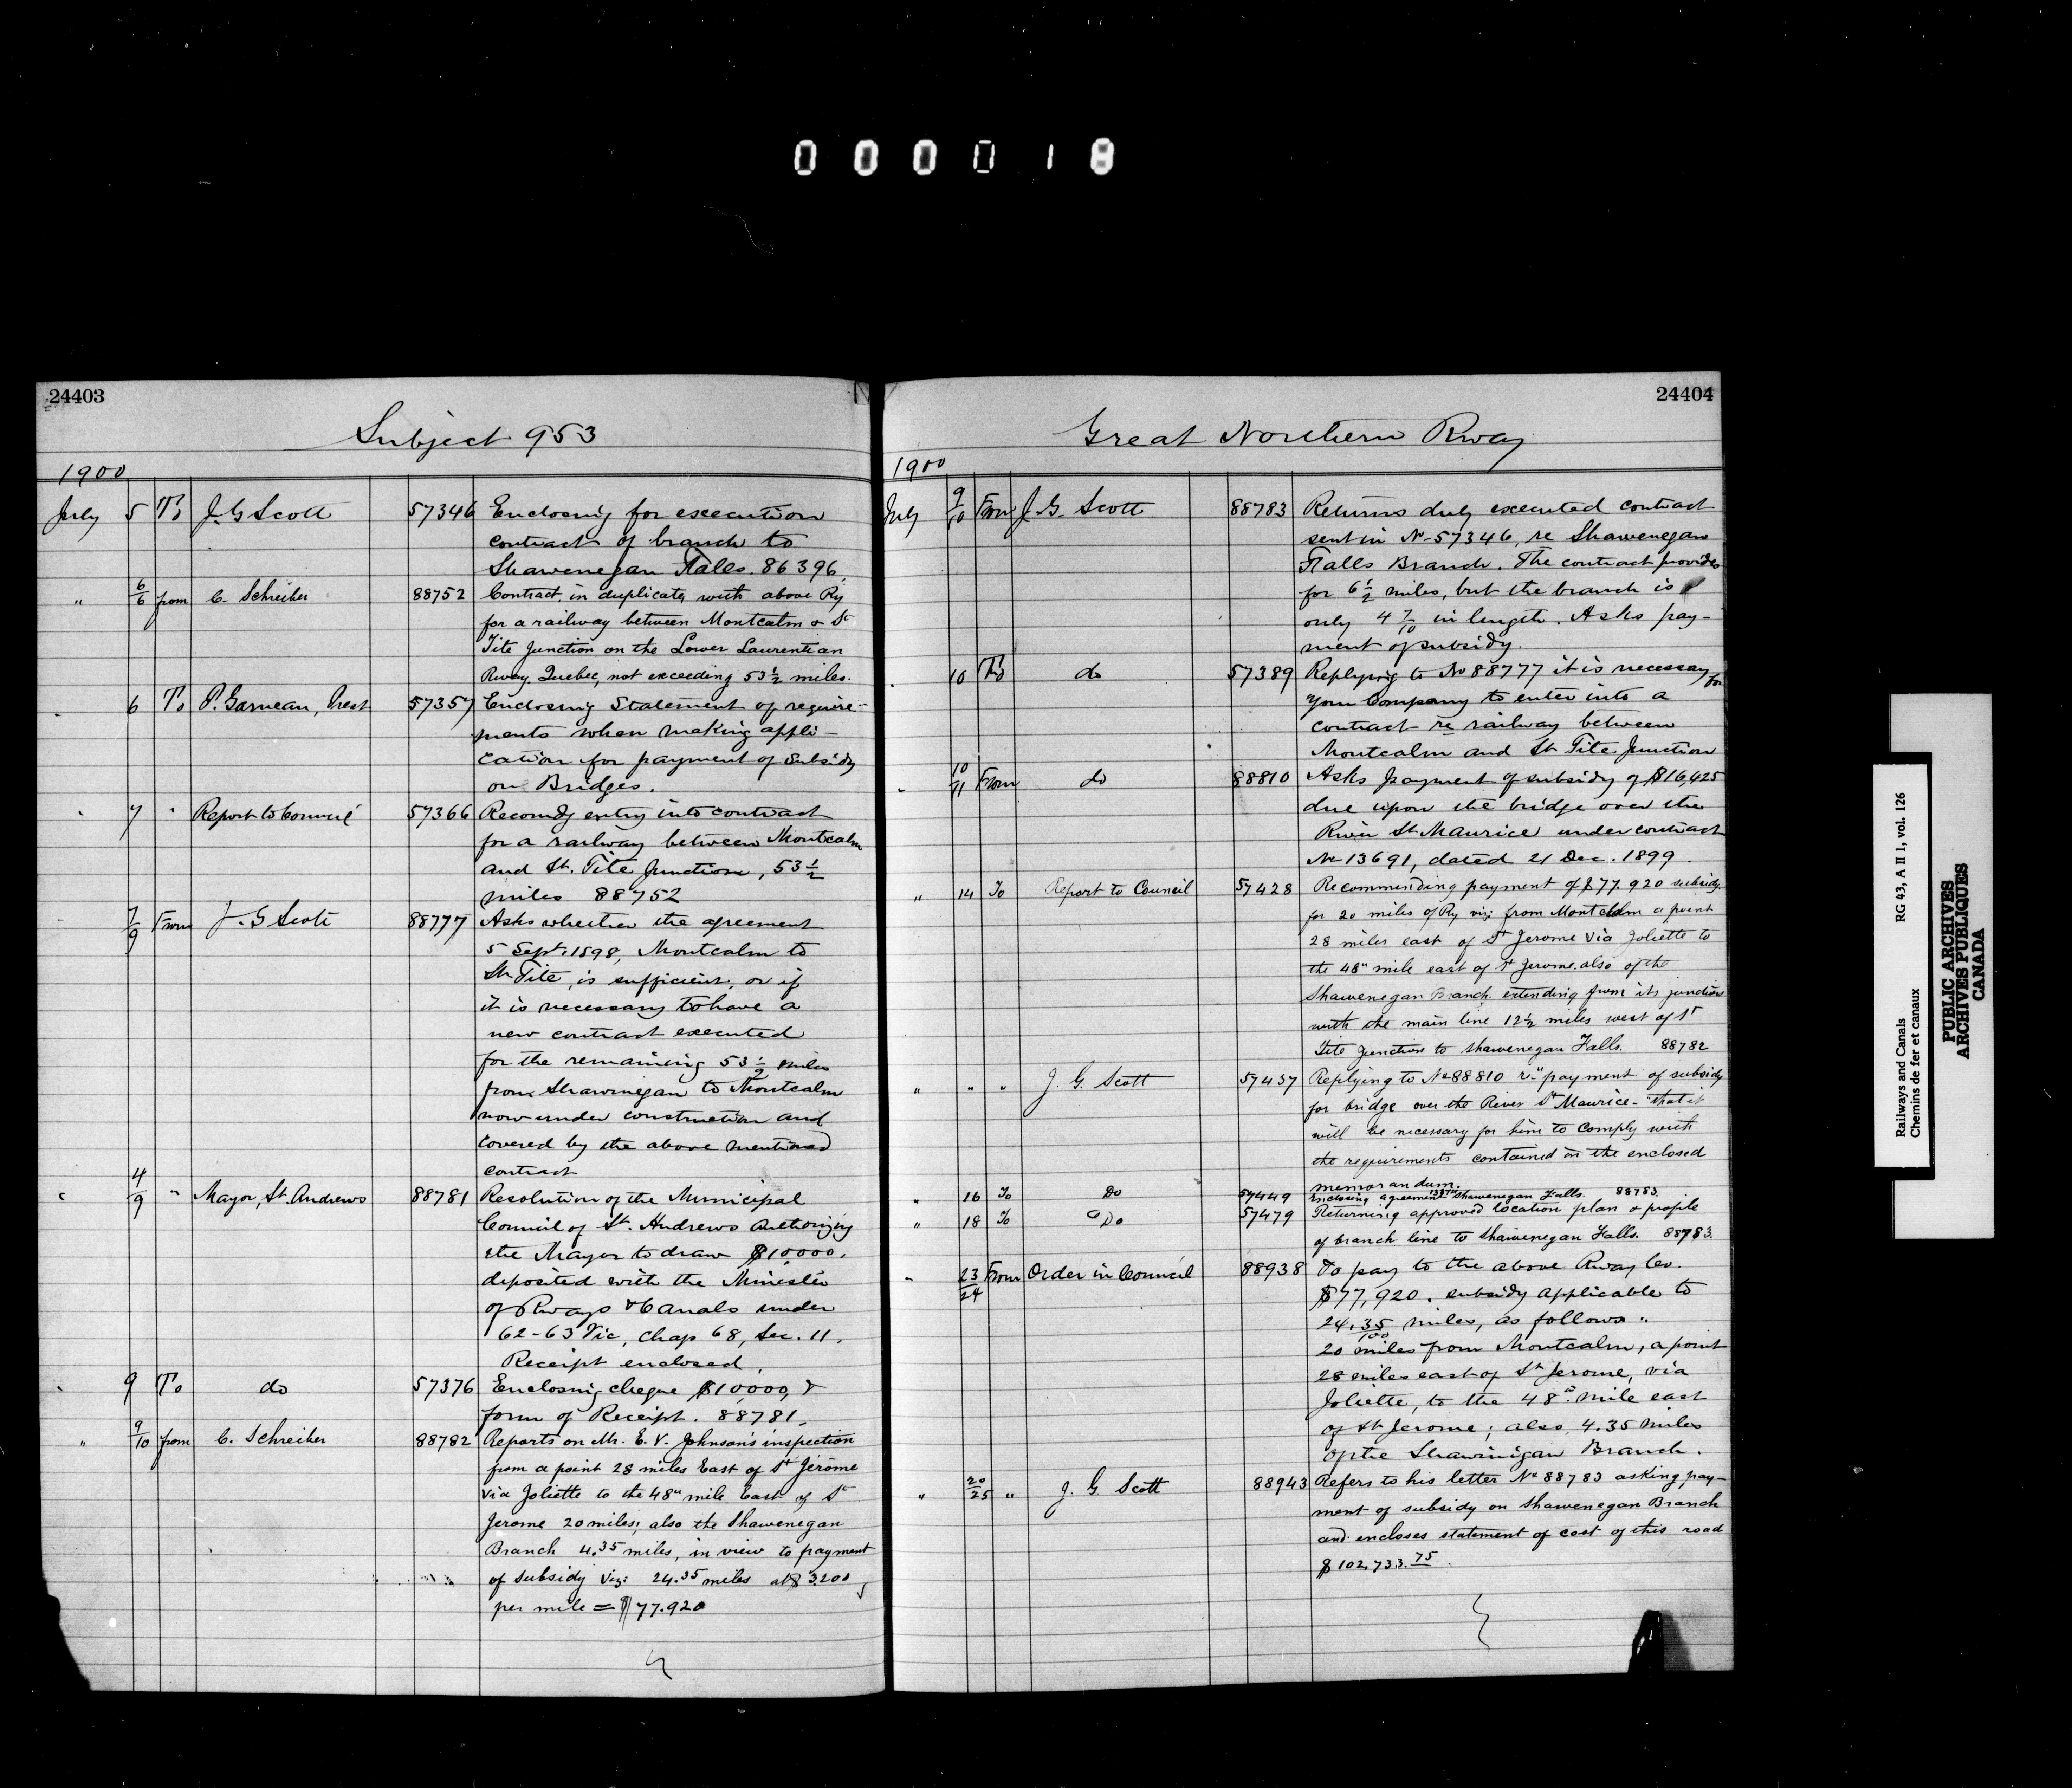 000018
24403
Subject 953
1900
July 5 To J. G Scott 57346 Enclosing for execution
contract of branch to
Shawenegan Falls. 86396.
" 6/6 from C. Schreiber 88752 Contract, in duplicate, with above Ry
for a railway between Montcalm & St
Tite Junction on the Lower Laurentian
Rway. Quebec, not exceeding 53 1/2 miles.
" 6 To P. Garneau, Prest 57357 Enclosing Statement of require-
ments when making appli-
cation for payment of Subsidy
on Bridges.
" 7 " Report to Council 57366 Recomdg entry into contract
for a railway between Montcalm
and St. Tite Junction, 53 1/2
miles 88752
7/9 From J. G Scott 88777 Asks whether the agreement
5 Sept. 1898, Montcalm to
St. Tite, is sufficient, or if
it is necessary to have a
new contract executed
for the remaining 53 1/2 miles
from Shawinegan to Montcalm
now under construction and
covered by the above mentioned
contract
" 4/9 " Mayor, St. Andrews 88781 Resolution of the Municipal
Council of St. Andrews authorizing
the Mayor to draw $10,000.
deposited with the Minister
of Rways & Canals under
62-63 Vic, Chap 68, Sec. 11.
Receipt enclosed.
" 9 To do 57376 Enclosing cheque $10,000, &
form of Receipt. 88781.
" 9/10 from C. Schreiber 88782 Reports on Mr. E. V. Johnson's inspection
from a point 28 miles East of St Jerôme
via Joliette to the 48" mile East of St
Jerome 20 miles; also the Shawenegan
Branch 4.35 miles, in view to payment
of subsidy viz: 24.35 miles at $3200
per mile = $77.920
24404
Great Northern Rway
1900
July 9/10 From J. G. Scott 88783 Returns duly executed contract
sent in No 57346, re Shawenegan
Falls Branch. The contract provides
for 6 1/2 miles, but the branch is
only 4 7/10 in length. Asks pay-
ment of subsidy.
" 10 To do 57389 Replying to No 88777 it is necessary for
your Company to enter into a
contract re railway between
Montcalm and St Tite Junction
" 10/11 From do 88810 Asks payment of subsidy of $16,425
due upon the bridge over the
River St. Maurice under contract
No 13691, dated 21 Dec. 1899.
" 14 To Report to Council 57428 Recommending payment of $77.920 subsidy
for 20 miles of Ry viz: from Montcalm a point
28 miles east of St Jerome via Joliette to
the 48" mile east of St Jerome, also of the
Shawenegan Branch extending from its junction
with the main line 12 1/2 miles west of St
Tite Junction to Shawenegan Falls. 88782
" " " J. G. Scott 57437 Replying to No 88810 re payment of subsidy
for bridge over the River St Maurice - that it
will be necessary for him to comply with
the requirements contained in the enclosed
memorandum.
" 16 To Do 57449 Enclosing agreement Shawenegan Falls. 88783.
" 18 To Do 57479 Returning approved location plan & profile
of branch line to Shawenegan Falls. 88783.
" 23/24 From Order in Council 88938 To pay to the above Rway Co.
$77,920. subsidy applicable to
24.35/100 miles, as follows:
20 miles from Montcalm, a point
28 miles east of St Jerome, via
Joliette, to the 48th mile east
of St Jerome; also, 4.35 miles
of the Shawinigan Branch.
" 20/25 " J. G. Scott 88943 Refers to his letter No 88783 asking pay-
ment of subsidy on Shawenegan Branch
and encloses statement of cost of this road
$102,733.75.
Railways and Canals RG 43, A II 1, vol. 126
Chemins de fer et canaux
PUBLIC ARCHIVES
ARCHIVES PUBLIQUES
CANADA